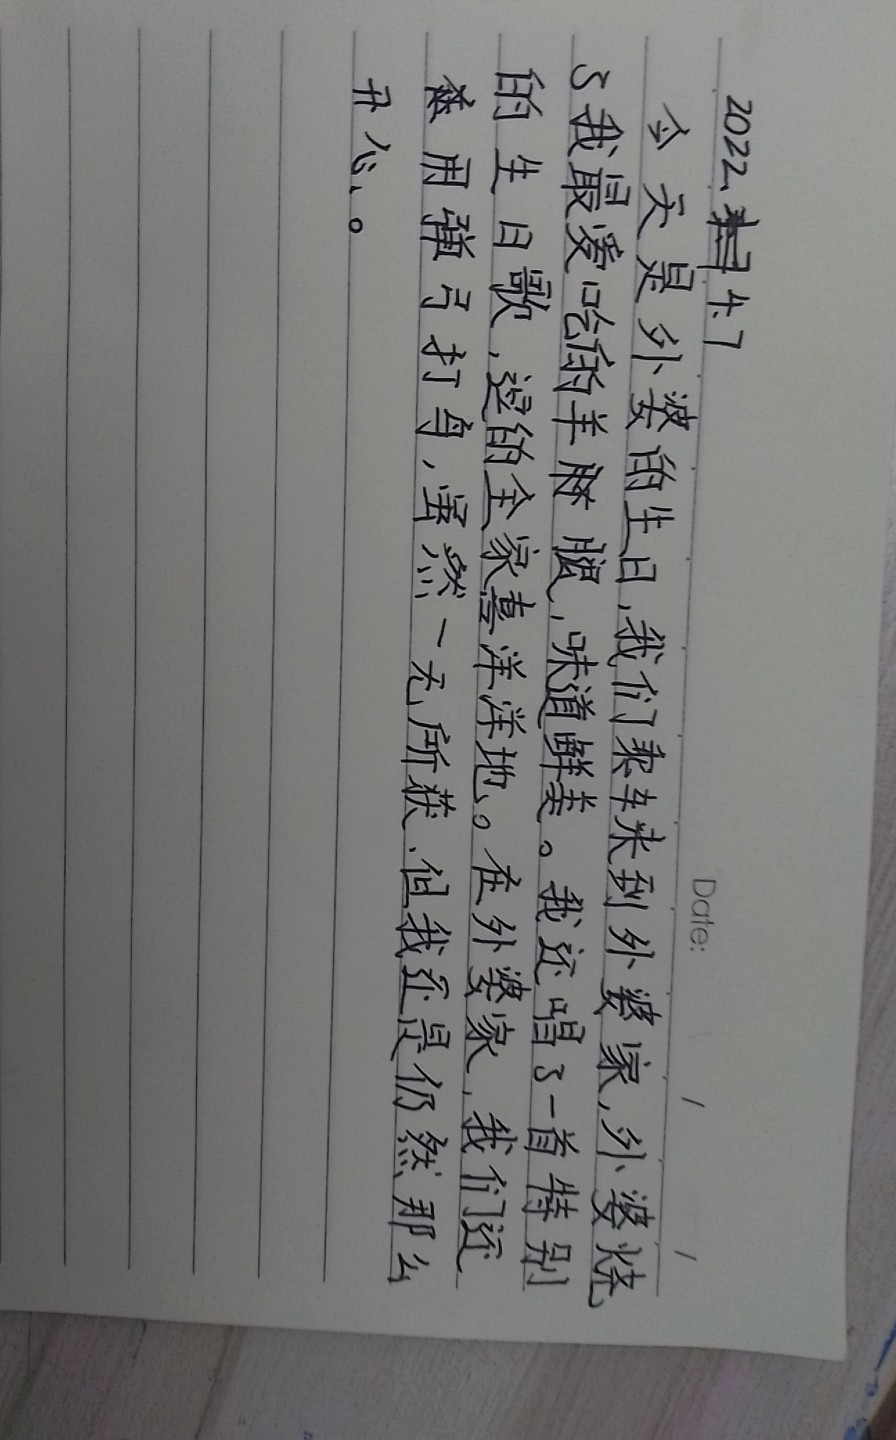 2022.4.7
Date: / /
今天是外婆的生日,我们乘车来到外婆家,外婆烧
了我最爱吃的羊麻腿,味道鲜美。我还唱了一首特别
的生日歌,逗的全家喜洋洋地。在外婆家,我们还
用弹弓打鸟,虽然一无所获.但我还是仍然那么
开心。